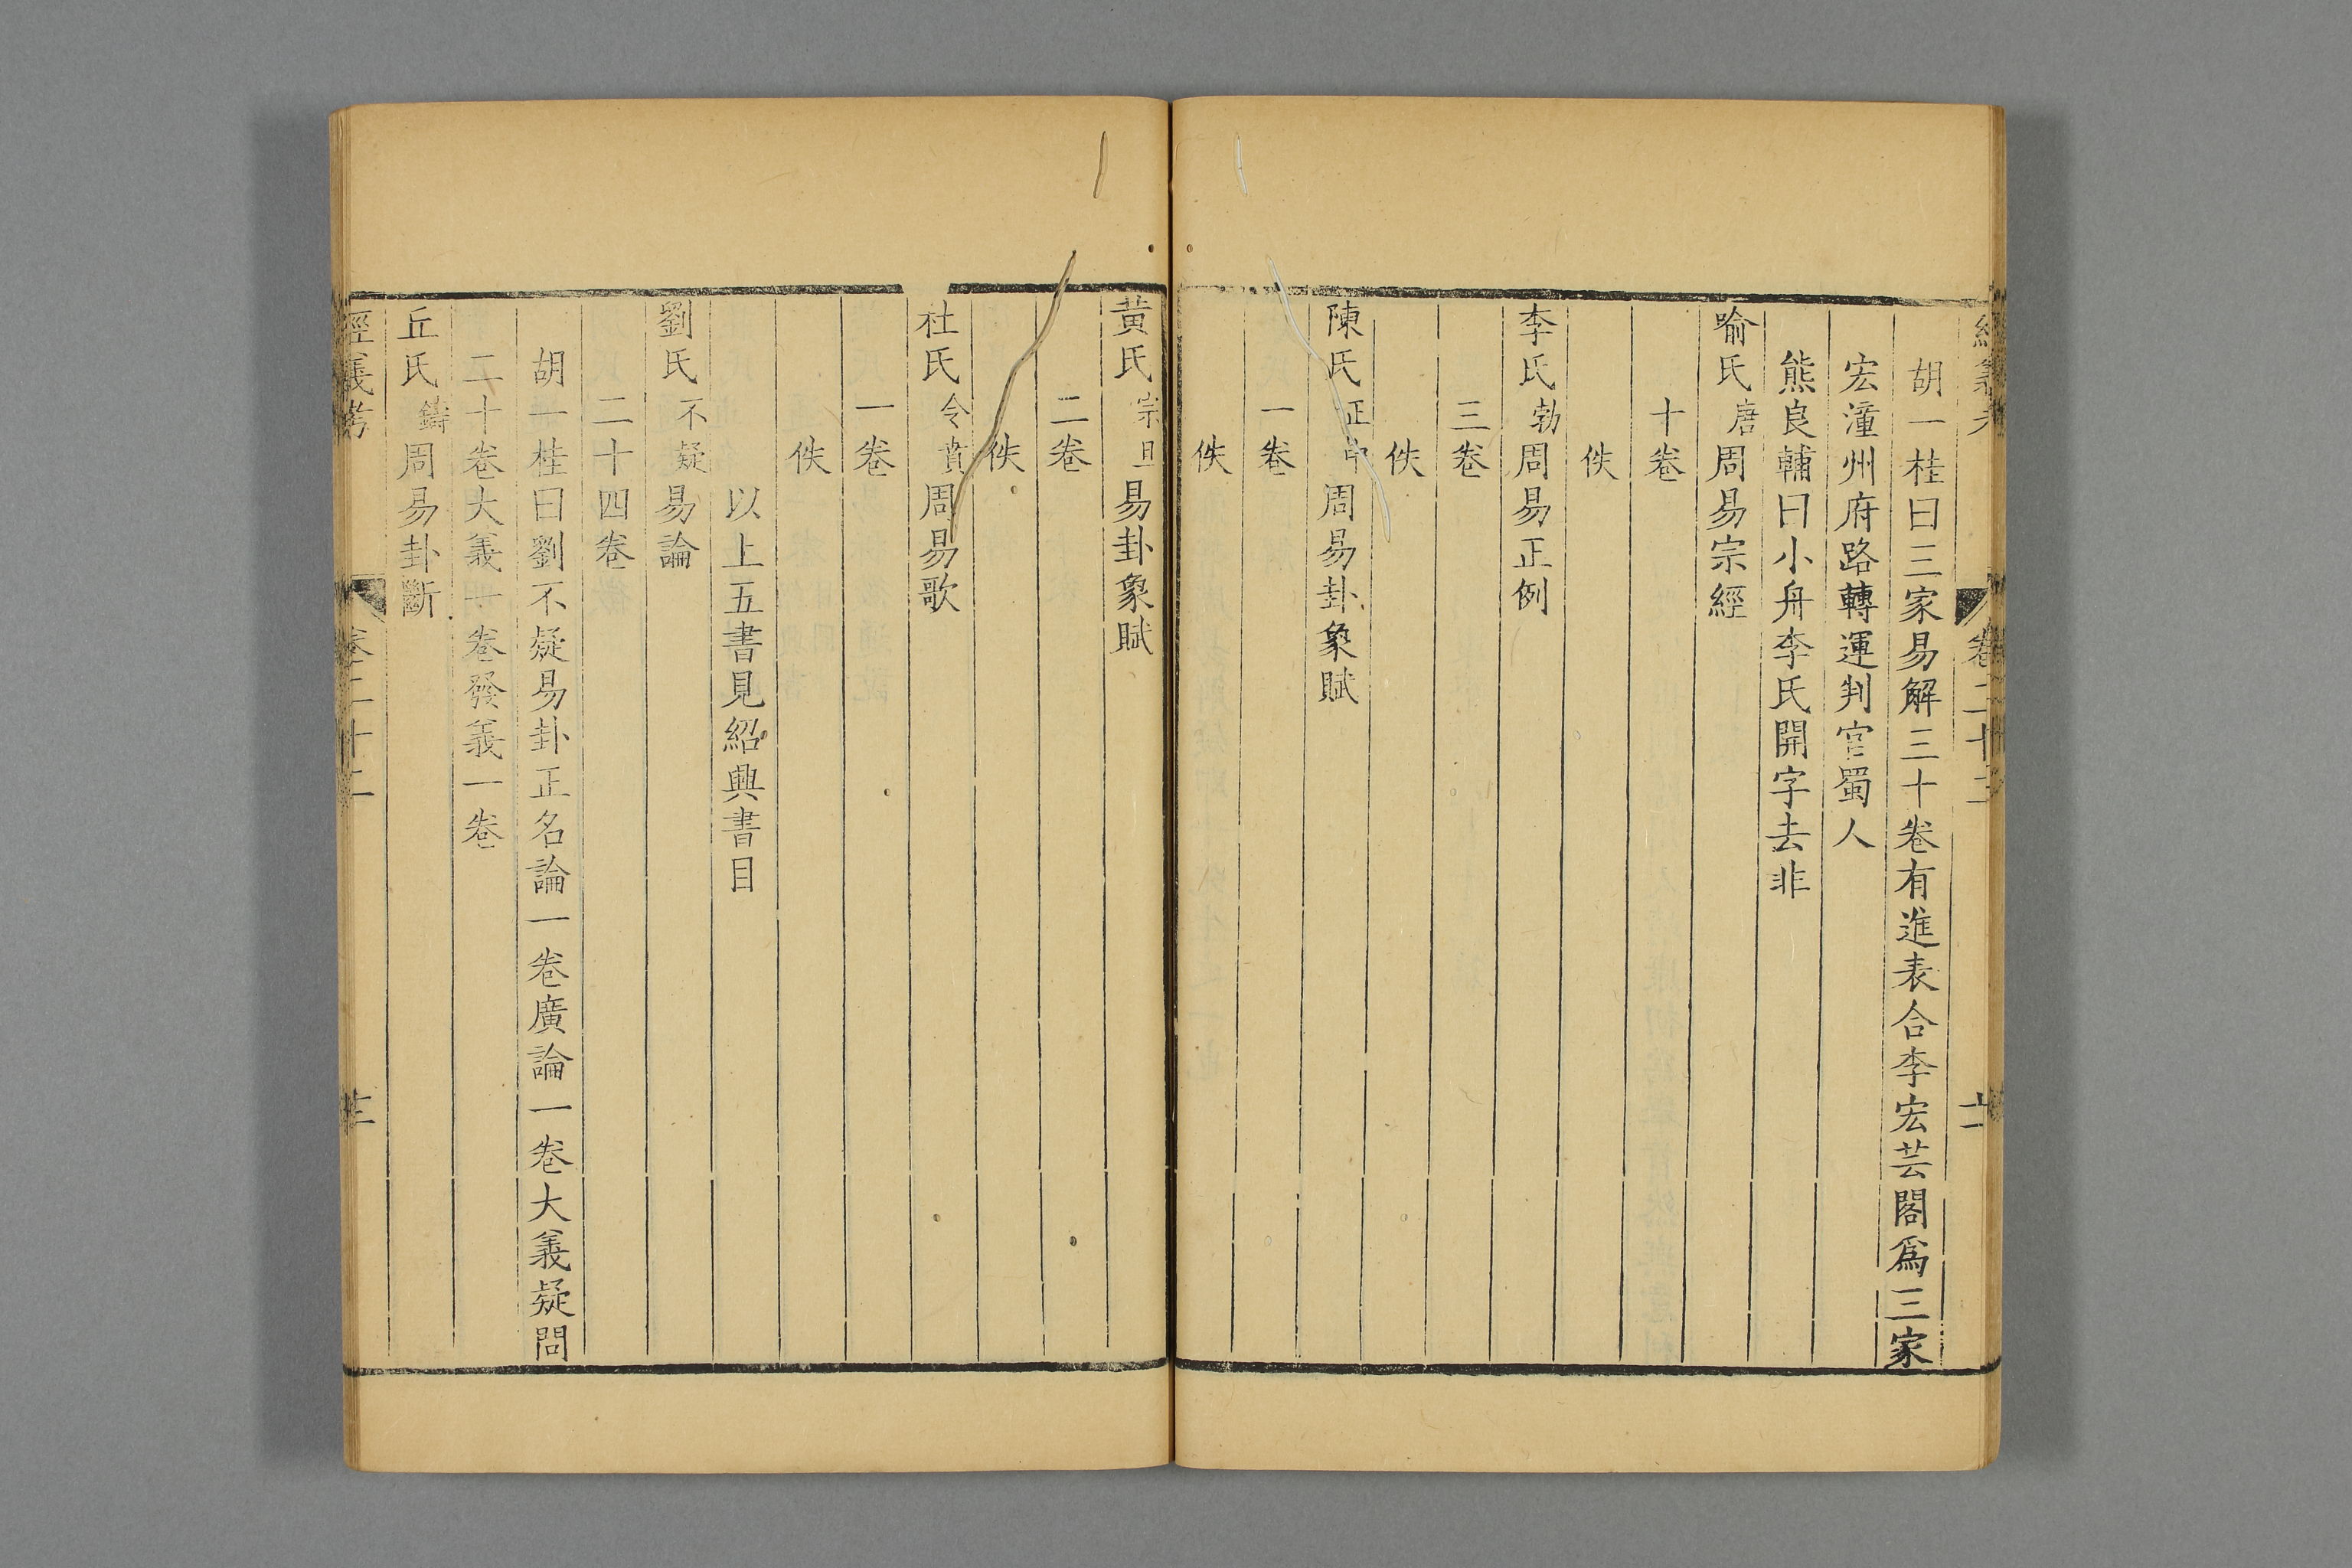 胡一桂曰三家易解三十卷有進表合李宏芸閣爲三家
宏潼州府路轉運判官蜀人
熊良輔曰小舟李氏開字去非
喻氏唐周易宗經
十卷
佚
李氏勃周易正例
三卷
佚
陳氏正中周易卦象賦
一卷
佚
黃氏宗旦易卦象賦
二卷
佚
杜氏令賁周易歌
一卷
佚
以上五書見紹興書目
劉氏不疑易論
二十四卷
胡一桂曰劉不疑易卦正名論一卷廣論一卷大義疑問
二十卷大義一卷發義一卷
丘氏鑄周易卦斷
經義考 卷二十二